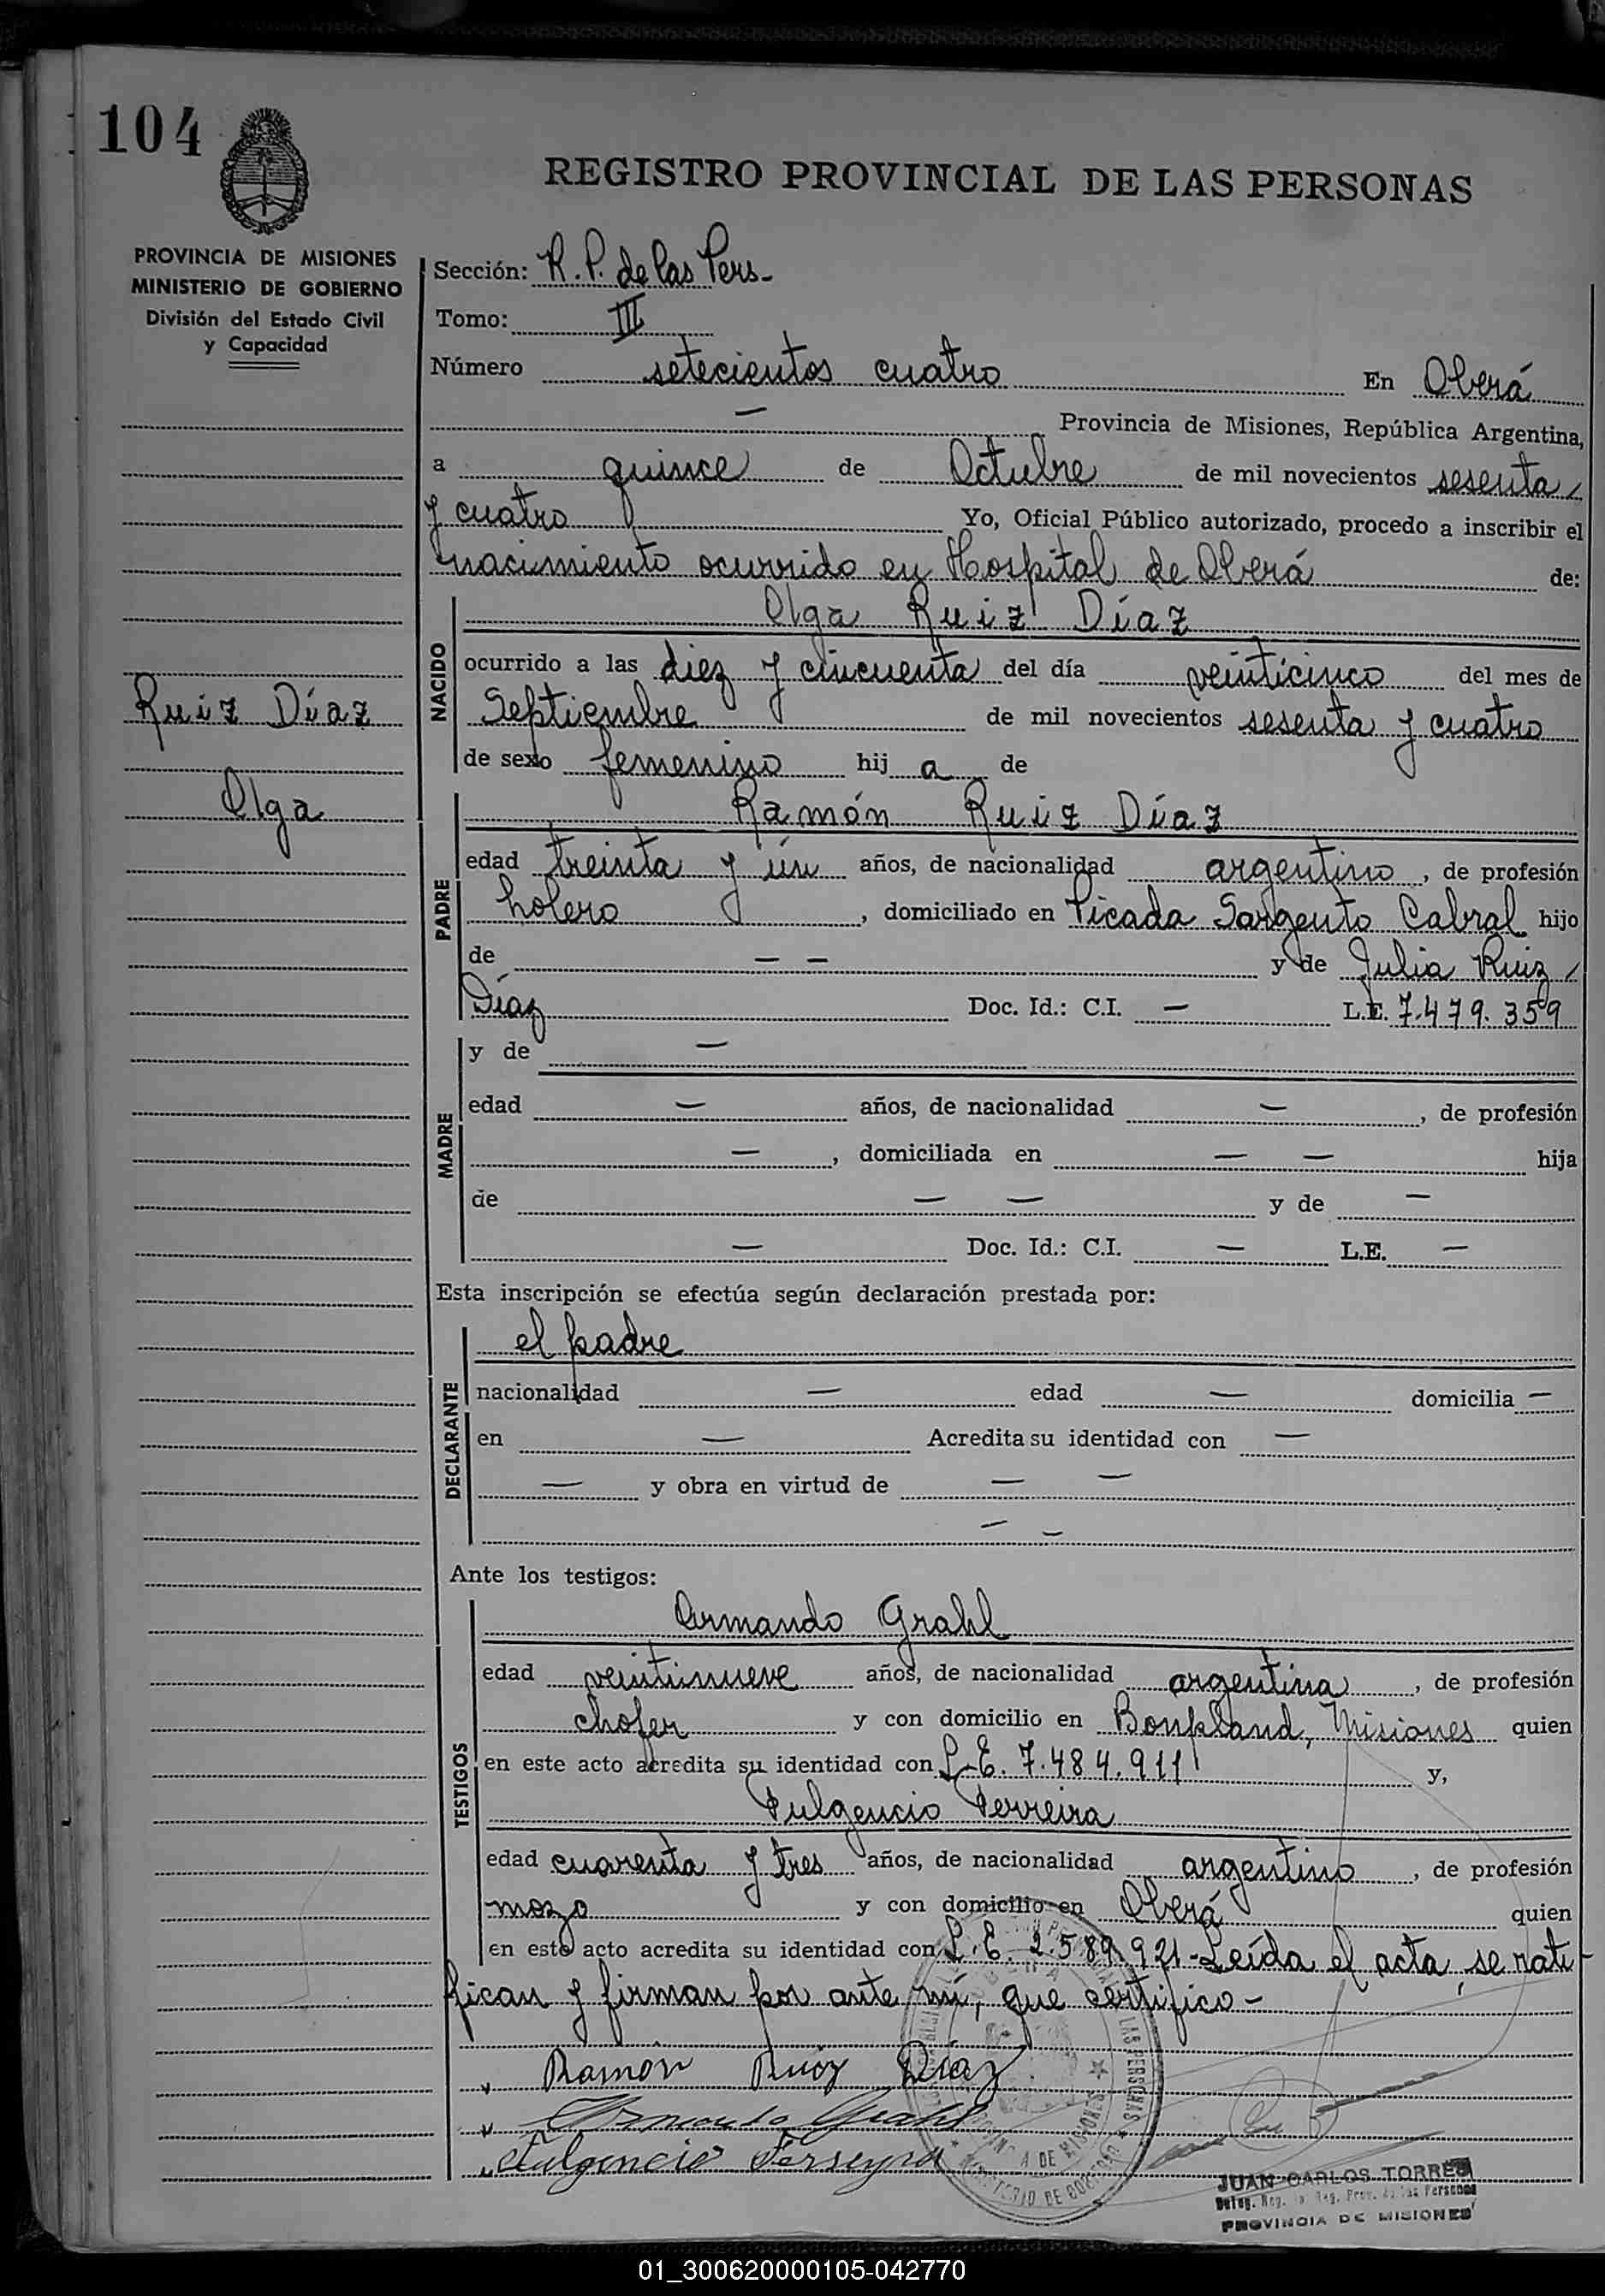 104
REGISTRO PROVINCIAL DE LAS PERSONAS
PROVINCIA DE MISIONES
MINISTERIO DE GOBIERNO
División del Estado Civil
y Capacidad
Sección: R. P. de las Pers-
Tomo: III
Número setecientos cuatro En Oberá
— Provincia de Misiones, República Argentina,
a quince de Octubre de mil novecientos sesenta
y cuatro Yo, Oficial Público autorizado, procedo a inscribir el
nacimiento ocurrido en Hospital de Oberá de:
NACIDO
Olga Ruiz Díaz
ocurrido a las diez y cincuenta del día veinticinco del mes de
Septiembre de mil novecientos sesenta y cuatro
de sexo femenino hij a de
Ruiz Díaz
Olga
PADRE
Ramón Ruiz Díaz
edad treinta y ún años, de nacionalidad argentino, de profesión
holero, domiciliado en Picada Sargento Cabral hijo
de — — y de Julia Ruiz
Díaz Doc. Id.: C.I. — L.E. 7.479.359
MADRE
y de —
edad — años, de nacionalidad —, de profesión
—, domiciliada en — — hija
de — — y de —
— Doc. Id.: C.I. — L.E. —
Esta inscripción se efectúa según declaración prestada por:
DECLARANTE
el padre
nacionalidad — edad — domicilia —
en — Acredita su identidad con —
— y obra en virtud de — —
— —
Ante los testigos:
TESTIGOS
Armando Grahl
edad veintinueve años, de nacionalidad argentina, de profesión
chofer y con domicilio en Bonpland, Misiones quien
en este acto acredita su identidad con L.E. 7.484.911 y,
Fulgencio Ferreira
edad cuarenta y tres años, de nacionalidad argentino, de profesión
mozo y con domicilio en Oberá quien
en este acto acredita su identidad con L.E. 2.589.921- Leída el acta, se rati-
fican y firman por ante mí, que certifico-
Ramón Ruiz Díaz
Armando Grahl
Fulgencio Ferreyra
JUAN CARLOS TORRES
Deleg. Reg. Prov. de las Personas
PROVINCIA DE MISIONES
01_300620000105-042770